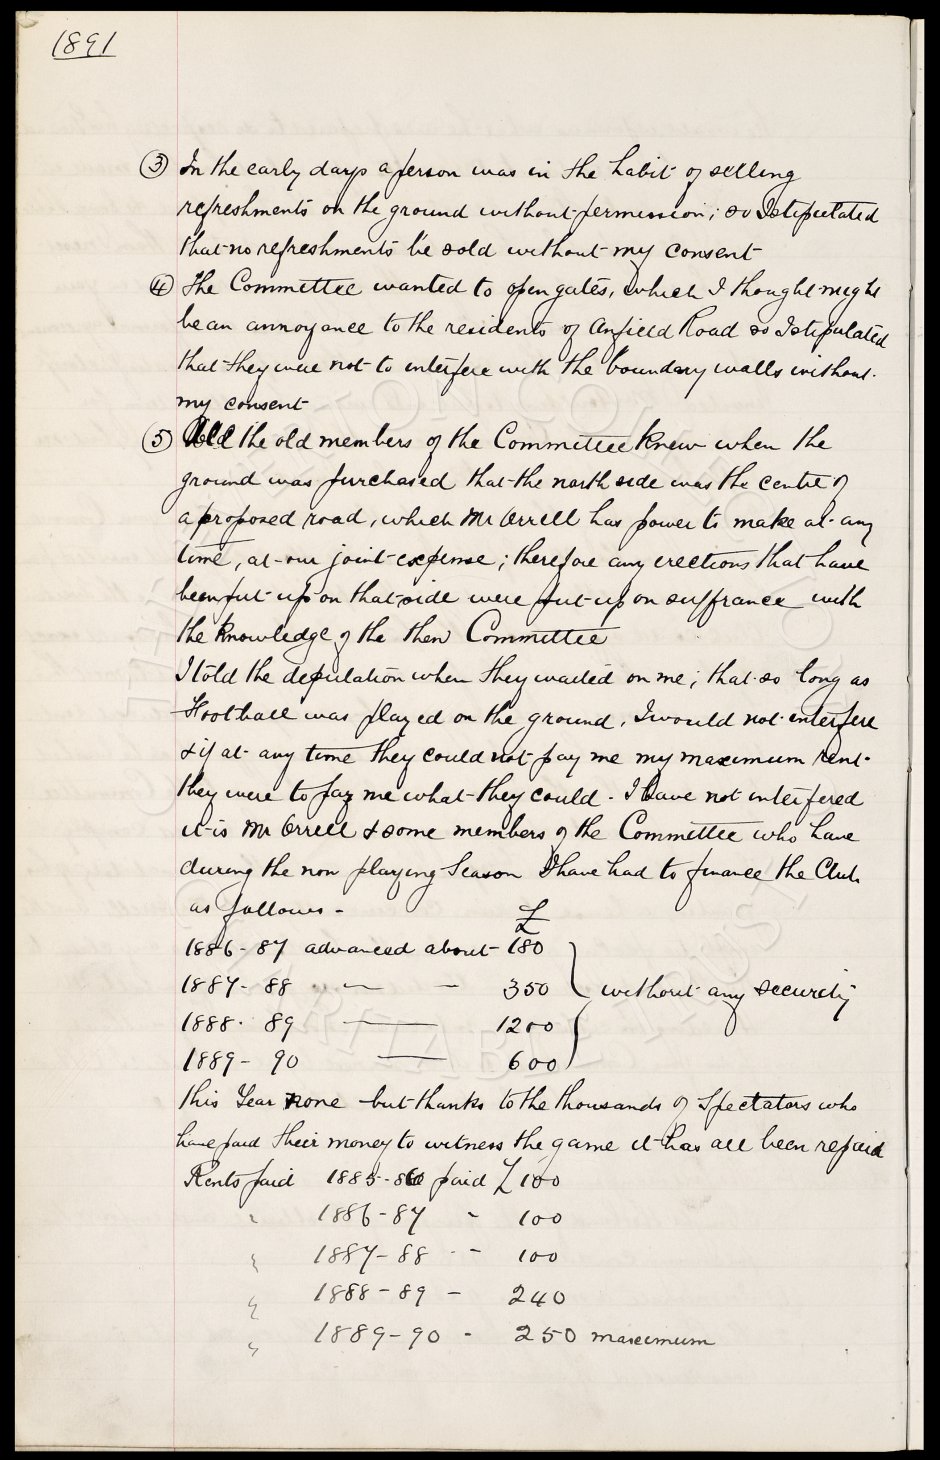 1891
③ In the early days a person was in the habit of selling
refreshments on the ground without permission; so I stipulated
that no refreshments be sold without my consent
④ The Committee wanted to open gates, which I thought might
be an annoyance to the residents of Anfield Road so I stipulated
that they were not to interfere with the boundary walls without
my consent
⑤ All the old members of the Committee knew when the
ground was purchased that the north side was the centre of
a proposed road, which Mr Orrell has power to make at any
time, at our joint expense; therefore any erections that have
been put up on that side were put up on suffrance with
the knowledge of the then Committee
I told the deputation when they waited on me; that so long as
Football was played on the ground, I would not interfere
& if at any time they could not pay me my maximum rent
they were to pay me what they could. I have not interfered
it is Mr Orrell & some members of the Committee who have
during the non playing Season I have had to finance the Club
as follows -
£
1886-87 advanced about 180
1887-88 " — — 350 without any security
1888-89 — 1200
1889-90 — 600
This Year none but thanks to the thousands of Spectators who
have paid their money to witness the game it has all been repaid
Rents paid 1885-86 paid £100
" 1886-87 - 100
" 1887-88 - 100
" 1888-89 - 240
" 1889-90 - 250 maximum